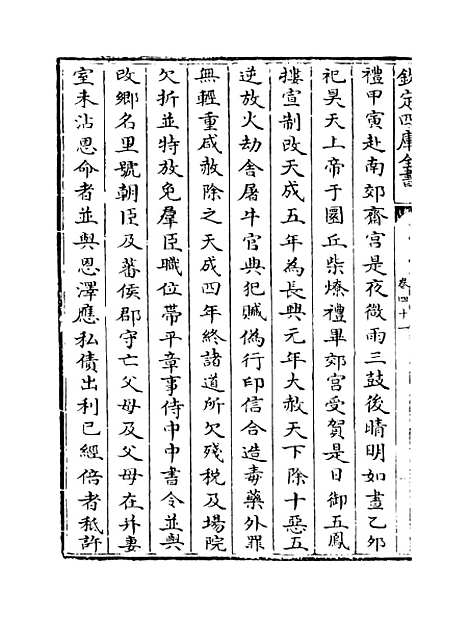 欽定四庫全書
卷四十一
禮甲寅赴南郊齋宮是夜微雨三鼓後晴明如晝乙卯
祀昊天上帝于圜丘柴燎禮畢郊宮受賀是日御五鳳
樓宣制改天成五年為長興元年大赦天下除十惡五
逆放火劫舍屠牛官典犯贓偽行印信合造毒藥外罪
無輕重咸赦除之天成四年終諸道所欠殘稅及場院
欠折並特放免羣臣職位帶平章事侍中中書令並與
改鄉名里號朝臣及蕃侯郡守亡父母及父母在并妻
室未沾恩命者並與恩澤應私債出利已經倍者秪許